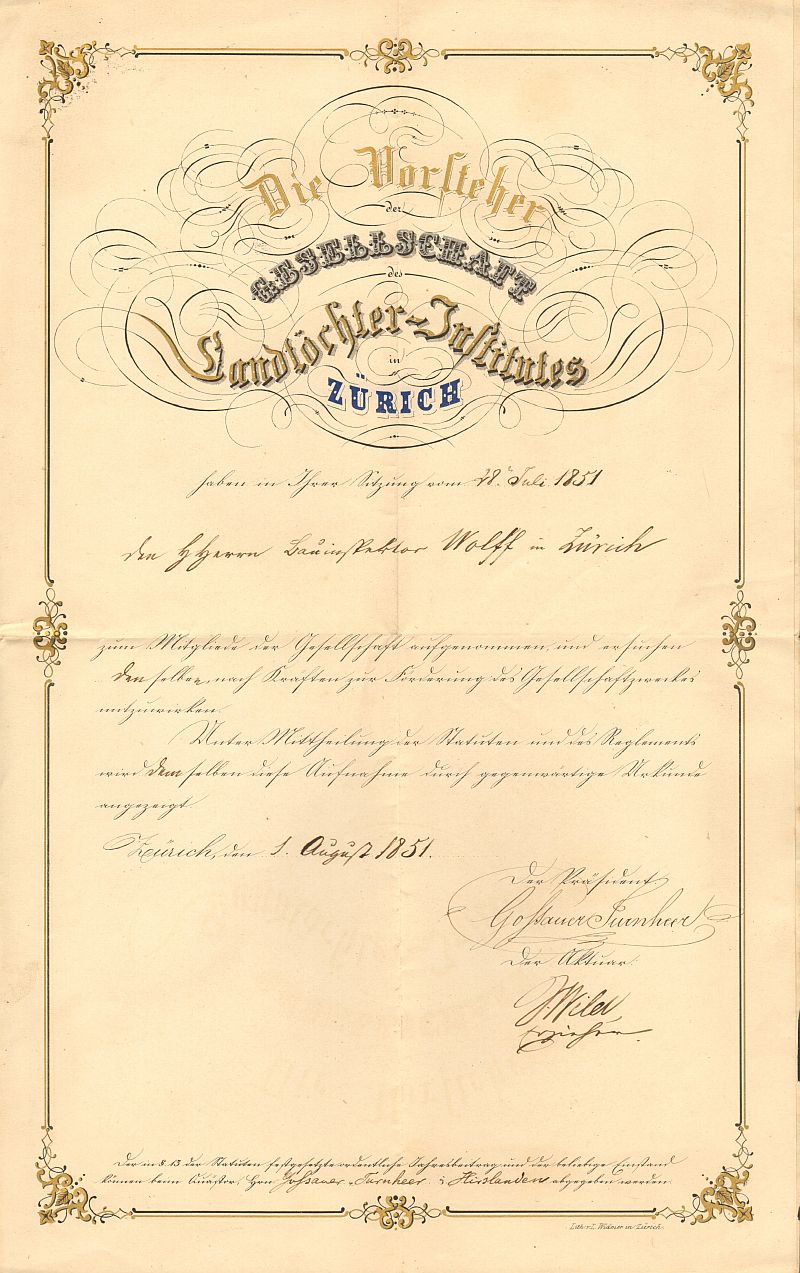 Die Vorsteher
der
GESELLSCHAFT
des
Landtöchter-Institutes
in
ZÜRICH
haben in Ihrer Sitzung vom 28. Juli 1851
den HHerrn Bauinspektor Wolff in Zürich
zum Mitgliede der Gesellschaft aufgenommen, und ersuchen
denselben, nach Kräften zur Förderung des Gesellschaftzweckes
mitzuwirken.
Unter Mittheilung der Statuten und des Reglements
wird demselben diese Aufnahme durch gegenwärtige Urkunde
angezeigt.
Zürich, den 1. August 1851.
Der Präsident
Goßauer
Der Aktuar:
J. Wild
Erzieher
Der in § 13 der Statuten festgesetzte ordentliche Jahresbeitrag und der beliebige Einstand
können beim Quästor, Hrn Goßauer Hirslanden abgegeben werden
Lith. v. L. Widmer in Zürich.